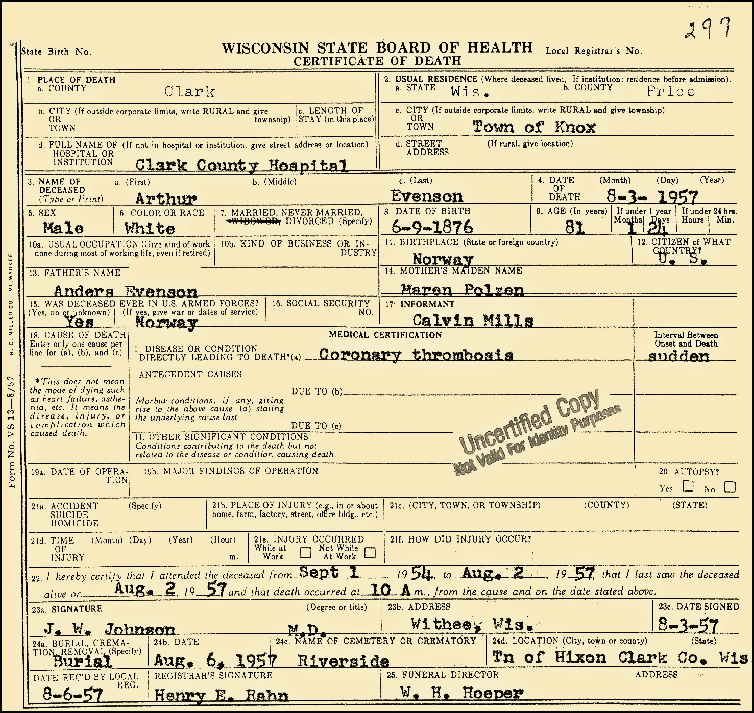 297
State Birth No. WISCONSIN STATE BOARD OF HEALTH Local Registrar's No.
CERTIFICATE OF DEATH
1. PLACE OF DEATH
a. COUNTY Clark
2. USUAL RESIDENCE (Where deceased lived, If institution: residence before admission).
a. STATE Wis. b. COUNTY Price
b. CITY (If outside corporate limits, write RURAL and give township)
OR
TOWN
c. LENGTH OF
STAY (in this place)
c. CITY (If outside corporate limits, write RURAL and give township)
OR
TOWN Town of Knox
d. FULL NAME OF (If not in hospital or institution, give street address or location)
HOSPITAL OR
INSTITUTION Clark County Hospital
d. STREET (If rural, give location)
ADDRESS
3. NAME OF a. (First) b. (Middle) c. (Last)
DECEASED
(Type or Print) Arthur Evenson
4. DATE (Month) (Day) (Year)
OF
DEATH 8-3- 1957
5. SEX
Male
6. COLOR OR RACE
White
7. MARRIED, NEVER MARRIED,
WIDOWED, DIVORCED (Specify)
8. DATE OF BIRTH
6-9-1876
9. AGE (In years)
81
If under 1 year
Months Days
1 24
If under 24 hrs.
Hours Min.
10a. USUAL OCCUPATION (Give kind of work
done during most of working life, even if retired)
10b. KIND OF BUSINESS OR IN-
DUSTRY
11. BIRTHPLACE (State or foreign country)
Norway
12. CITIZEN of WHAT
COUNTRY?
U. S.
13. FATHER'S NAME
Anders Evenson
14. MOTHER'S MAIDEN NAME
Maren Polzen
15. WAS DECEASED EVER IN U.S. ARMED FORCES?
(Yes, no or unknown) (If yes, give war or dates of service)
Yes Norway
16. SOCIAL SECURITY
NO.
17. INFORMANT
Calvin Mills
18. CAUSE OF DEATH
Enter only one cause per
line for (a), (b), and (c)
MEDICAL CERTIFICATION
Interval Between
Onset and Death
I. DISEASE OR CONDITION
DIRECTLY LEADING TO DEATH*(a) Coronary thrombosis sudden
*This does not mean
the mode of dying such
as heart failure, asthe-
nia, etc. It means the
disease, injury, or
complication which
caused death.
ANTECEDENT CAUSES
DUE TO (b)
Morbid conditions, if any, giving
rise to the above cause (a) stating
the underlying cause last
DUE TO (c)
II. OTHER SIGNIFICANT CONDITIONS
Conditions contributing to the death but not
related to the disease or condition causing death.
Uncertified Copy
Not Valid For Identity Purposes
19a. DATE OF OPERA-
TION
19b. MAJOR FINDINGS OF OPERATION
20. AUTOPSY?
Yes No
21a. ACCIDENT (Specify)
SUICIDE
HOMICIDE
21b. PLACE OF INJURY (e.g., in or about
home, farm, factory, street, office bldg., etc.)
21c. (CITY, TOWN, OR TOWNSHIP) (COUNTY) (STATE)
21d. TIME (Month) (Day) (Year) (Hour)
OF
INJURY m.
21e. INJURY OCCURRED
While at Not While
Work At Work
21f. HOW DID INJURY OCCUR?
22. I hereby certify that I attended the deceased from Sept 1 1954, to Aug. 2 1957 that I last saw the deceased
alive on Aug. 2 1957 and that death occurred at 10 A m., from the cause and on the date stated above.
23a. SIGNATURE (Degree or title)
J. W. Johnson M.D.
23b. ADDRESS
Withee, Wis.
23c. DATE SIGNED
8-3-57
24a. BURIAL, CREMA-
TION, REMOVAL (Specify)
Burial
24b. DATE
Aug. 6, 1957
24c. NAME OF CEMETERY OR CREMATORY
Riverside
24d. LOCATION (City, town or county) (State)
Tn of Hixon Clark Co. Wis
DATE REC'D BY LOCAL
REG.
8-6-57
REGISTRAR'S SIGNATURE
Henry E. Rahn
25. FUNERAL DIRECTOR ADDRESS
W. H. Hoeper
Form No. VS 13-8/57